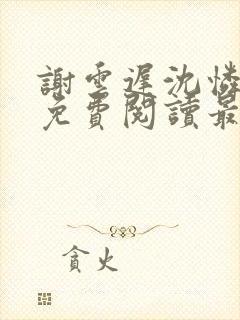 謝雲遲沈憐
免費閱讀最
貪火